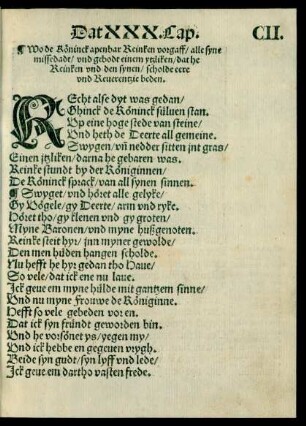 Dat XXX. Cap. CII.
¶ Wo de Köninck apenbar Reinken vorgaff / alle syne
missedadt / vnd gebodt einem ytzliken / dat he
Reinken vnd den synen / scholde eere
vnd Reuerentzie beden.
REcht alse dyt was gedan /
Ghinck de Köninck süluen stan.
Vp eine hoge stede van steine /
Vnd heth de Deerte all gemeine.
Swygen / vñ nedder sitten jnt gras /
Einen jtzliken / darna he gebaren was.
Reinke stundt by der Königinnen /
De Köninck sprack / van all synen sinnen.
¶ Swyget / vnd höret alle gelyke /
Gy Vögele / gy Deerte / arm vnd ryke.
Höret tho / gy klenen vnd gy groten /
Myne Baronen / vnd myne hußgenoten.
Reinke steit hyr / jnn myner gewolde /
Den men hüden hangen scholde.
Nu hefft he hyr gedan tho Haue /
So vele / dat ick ene nu laue.
Ick geue em myne hülde mit gantzem sinne /
Vnd nu myne frouwe de Königinne.
Hefft so vele gebeden vor en.
Dat ick syn fründt geworden bin.
Vnd he vorsönet ys / yegen my /
Vnd ick hebbe en gegeuen vrygh.
Beide syn gudt / syn lyff vnd lede /
Ick geue em dartho vasten frede.